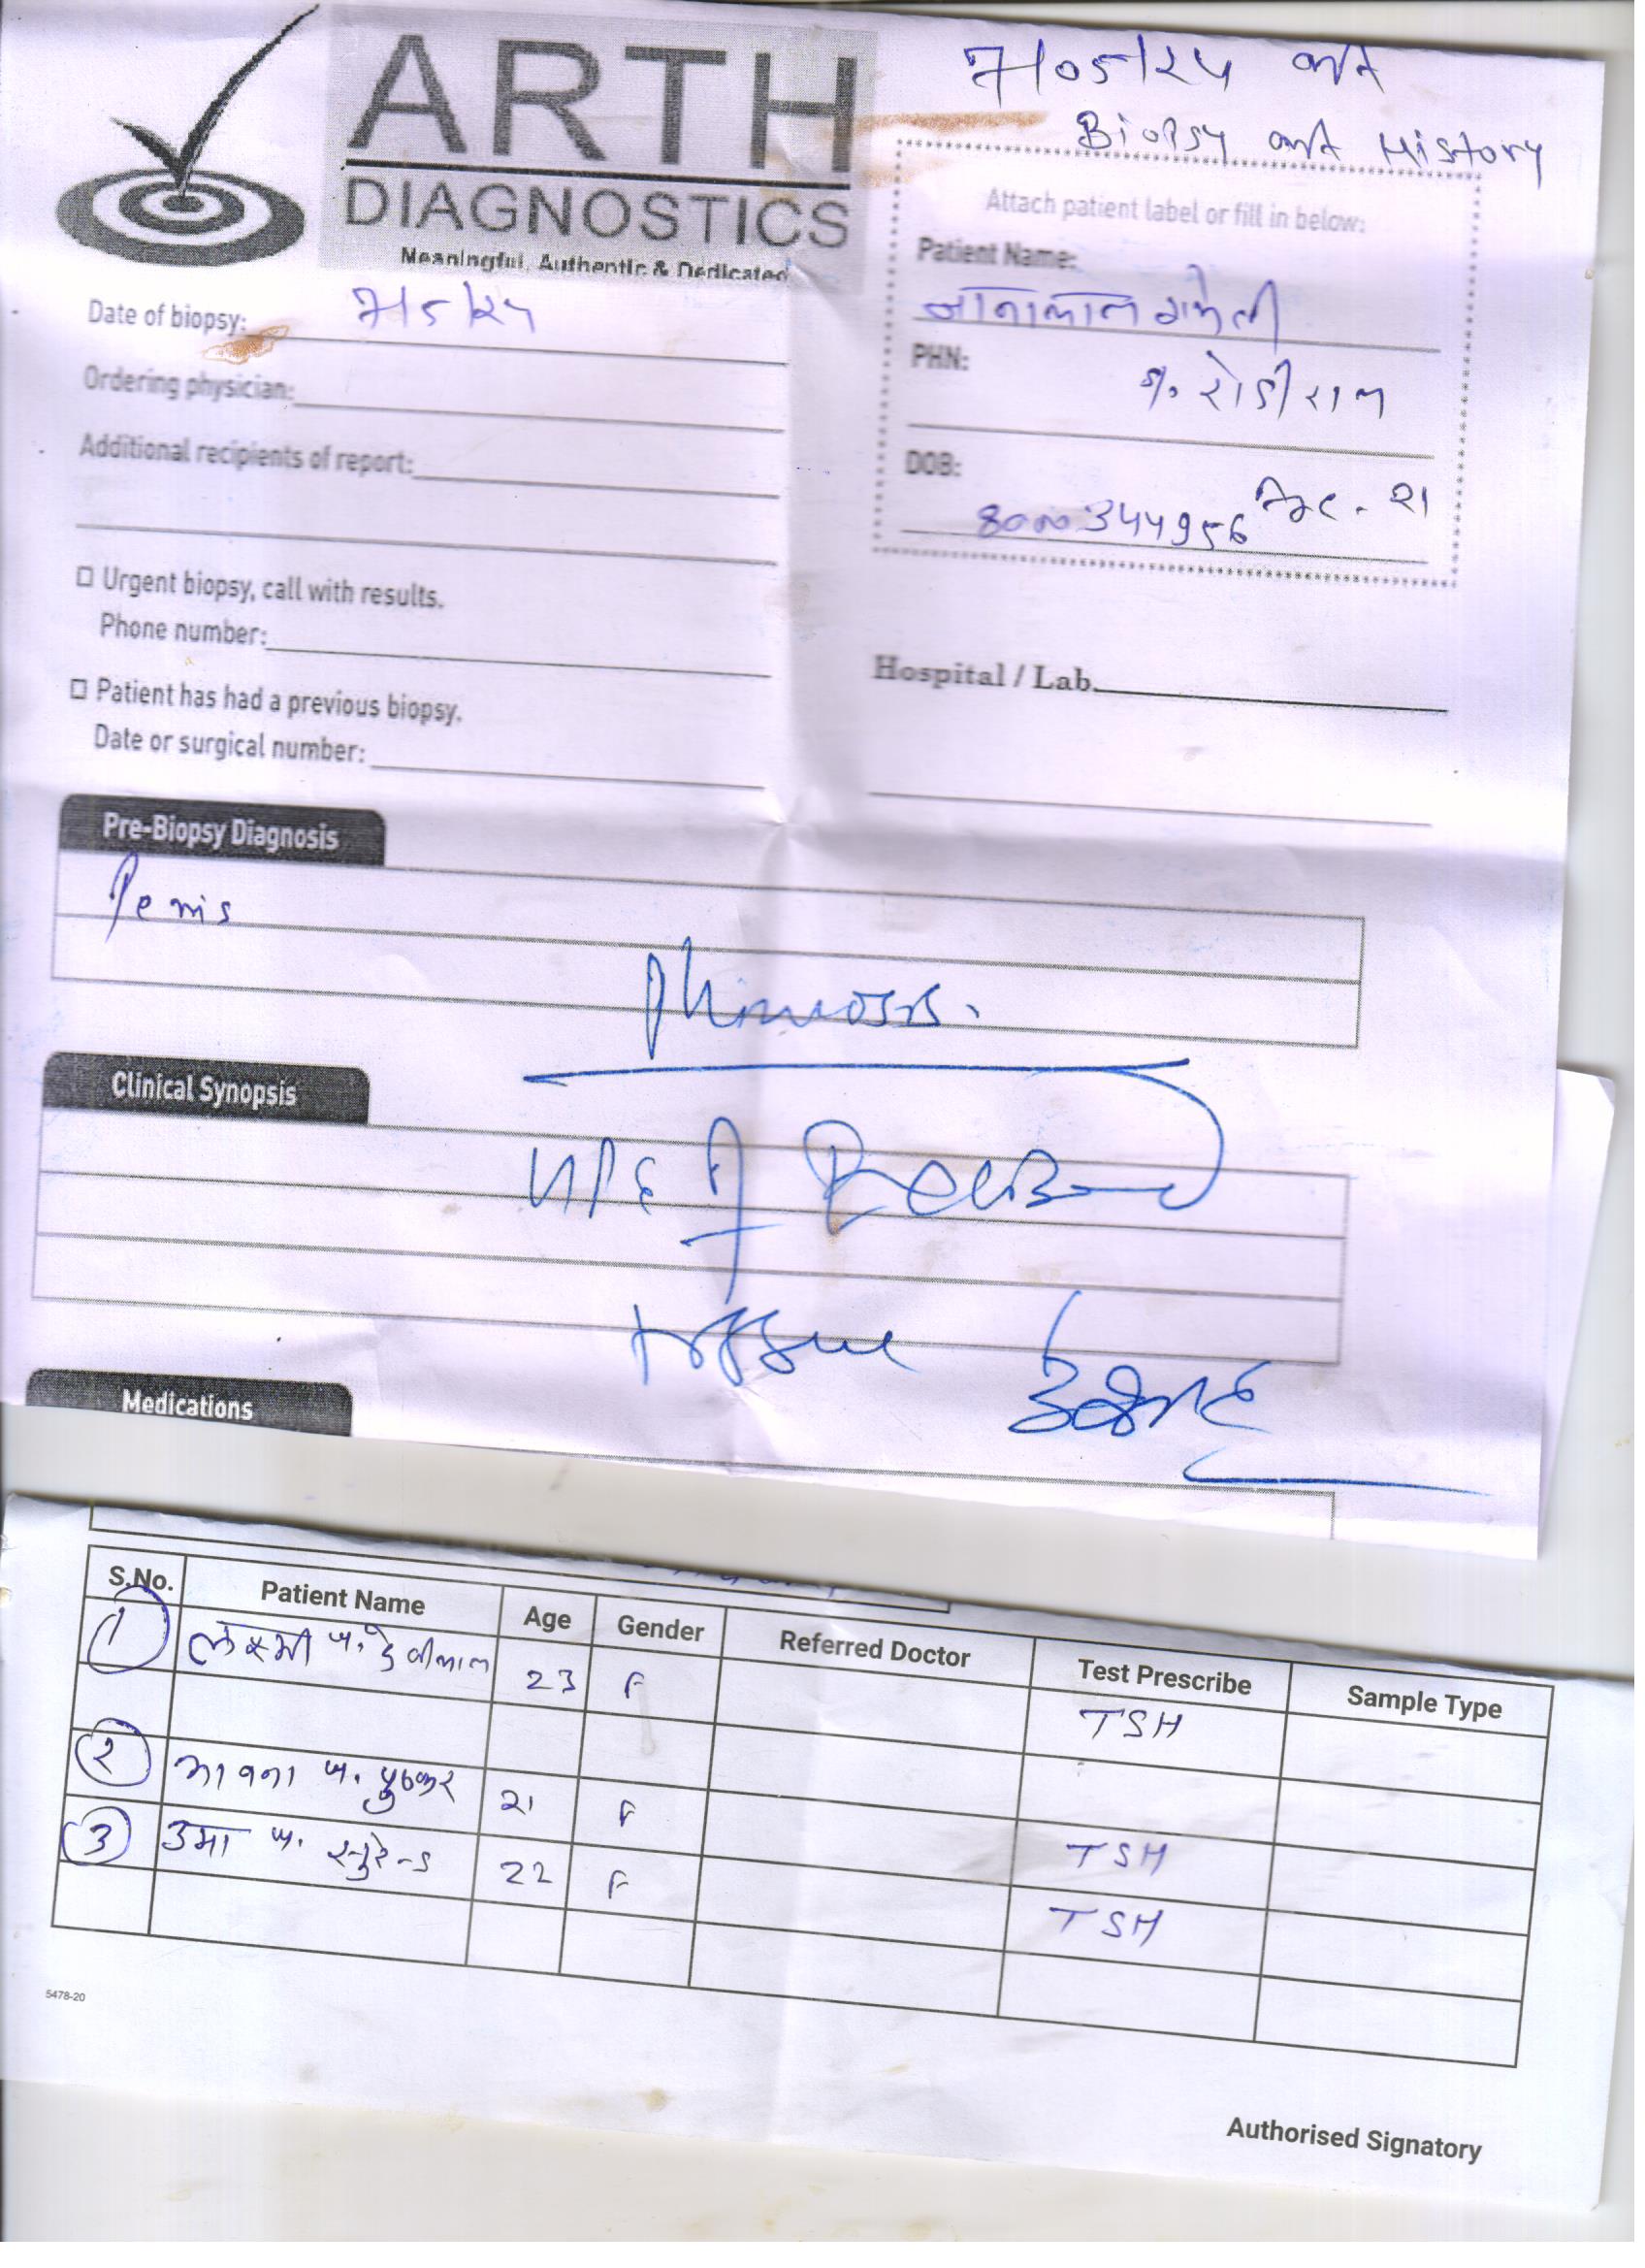 ARTH
DIAGNOSTICS
Meaningful, Authentic & Dedicated
7/05/24 का
Biopsy का History
Attach patient label or fill in below:
Patient Name:
PHN:
DOB:
8000344956
Date of biopsy: 7/5/24
Ordering physician:
Additional recipients of report:
Urgent biopsy, call with results.
Phone number:
Patient has had a previous biopsy.
Date or surgical number:
Hospital / Lab.
Pre-Biopsy Diagnosis
Penis
Phimosis.
Clinical Synopsis
HPE of
tissue
Medications
S.No. Patient Name Age Gender Referred Doctor Test Prescribe Sample Type
1 लक्ष्मी प. देवीलाल 23 F TSH
2 भावना प. पुष्कर 21 F TSH
3 उमा प. 22 F TSH
5478-20
Authorised Signatory